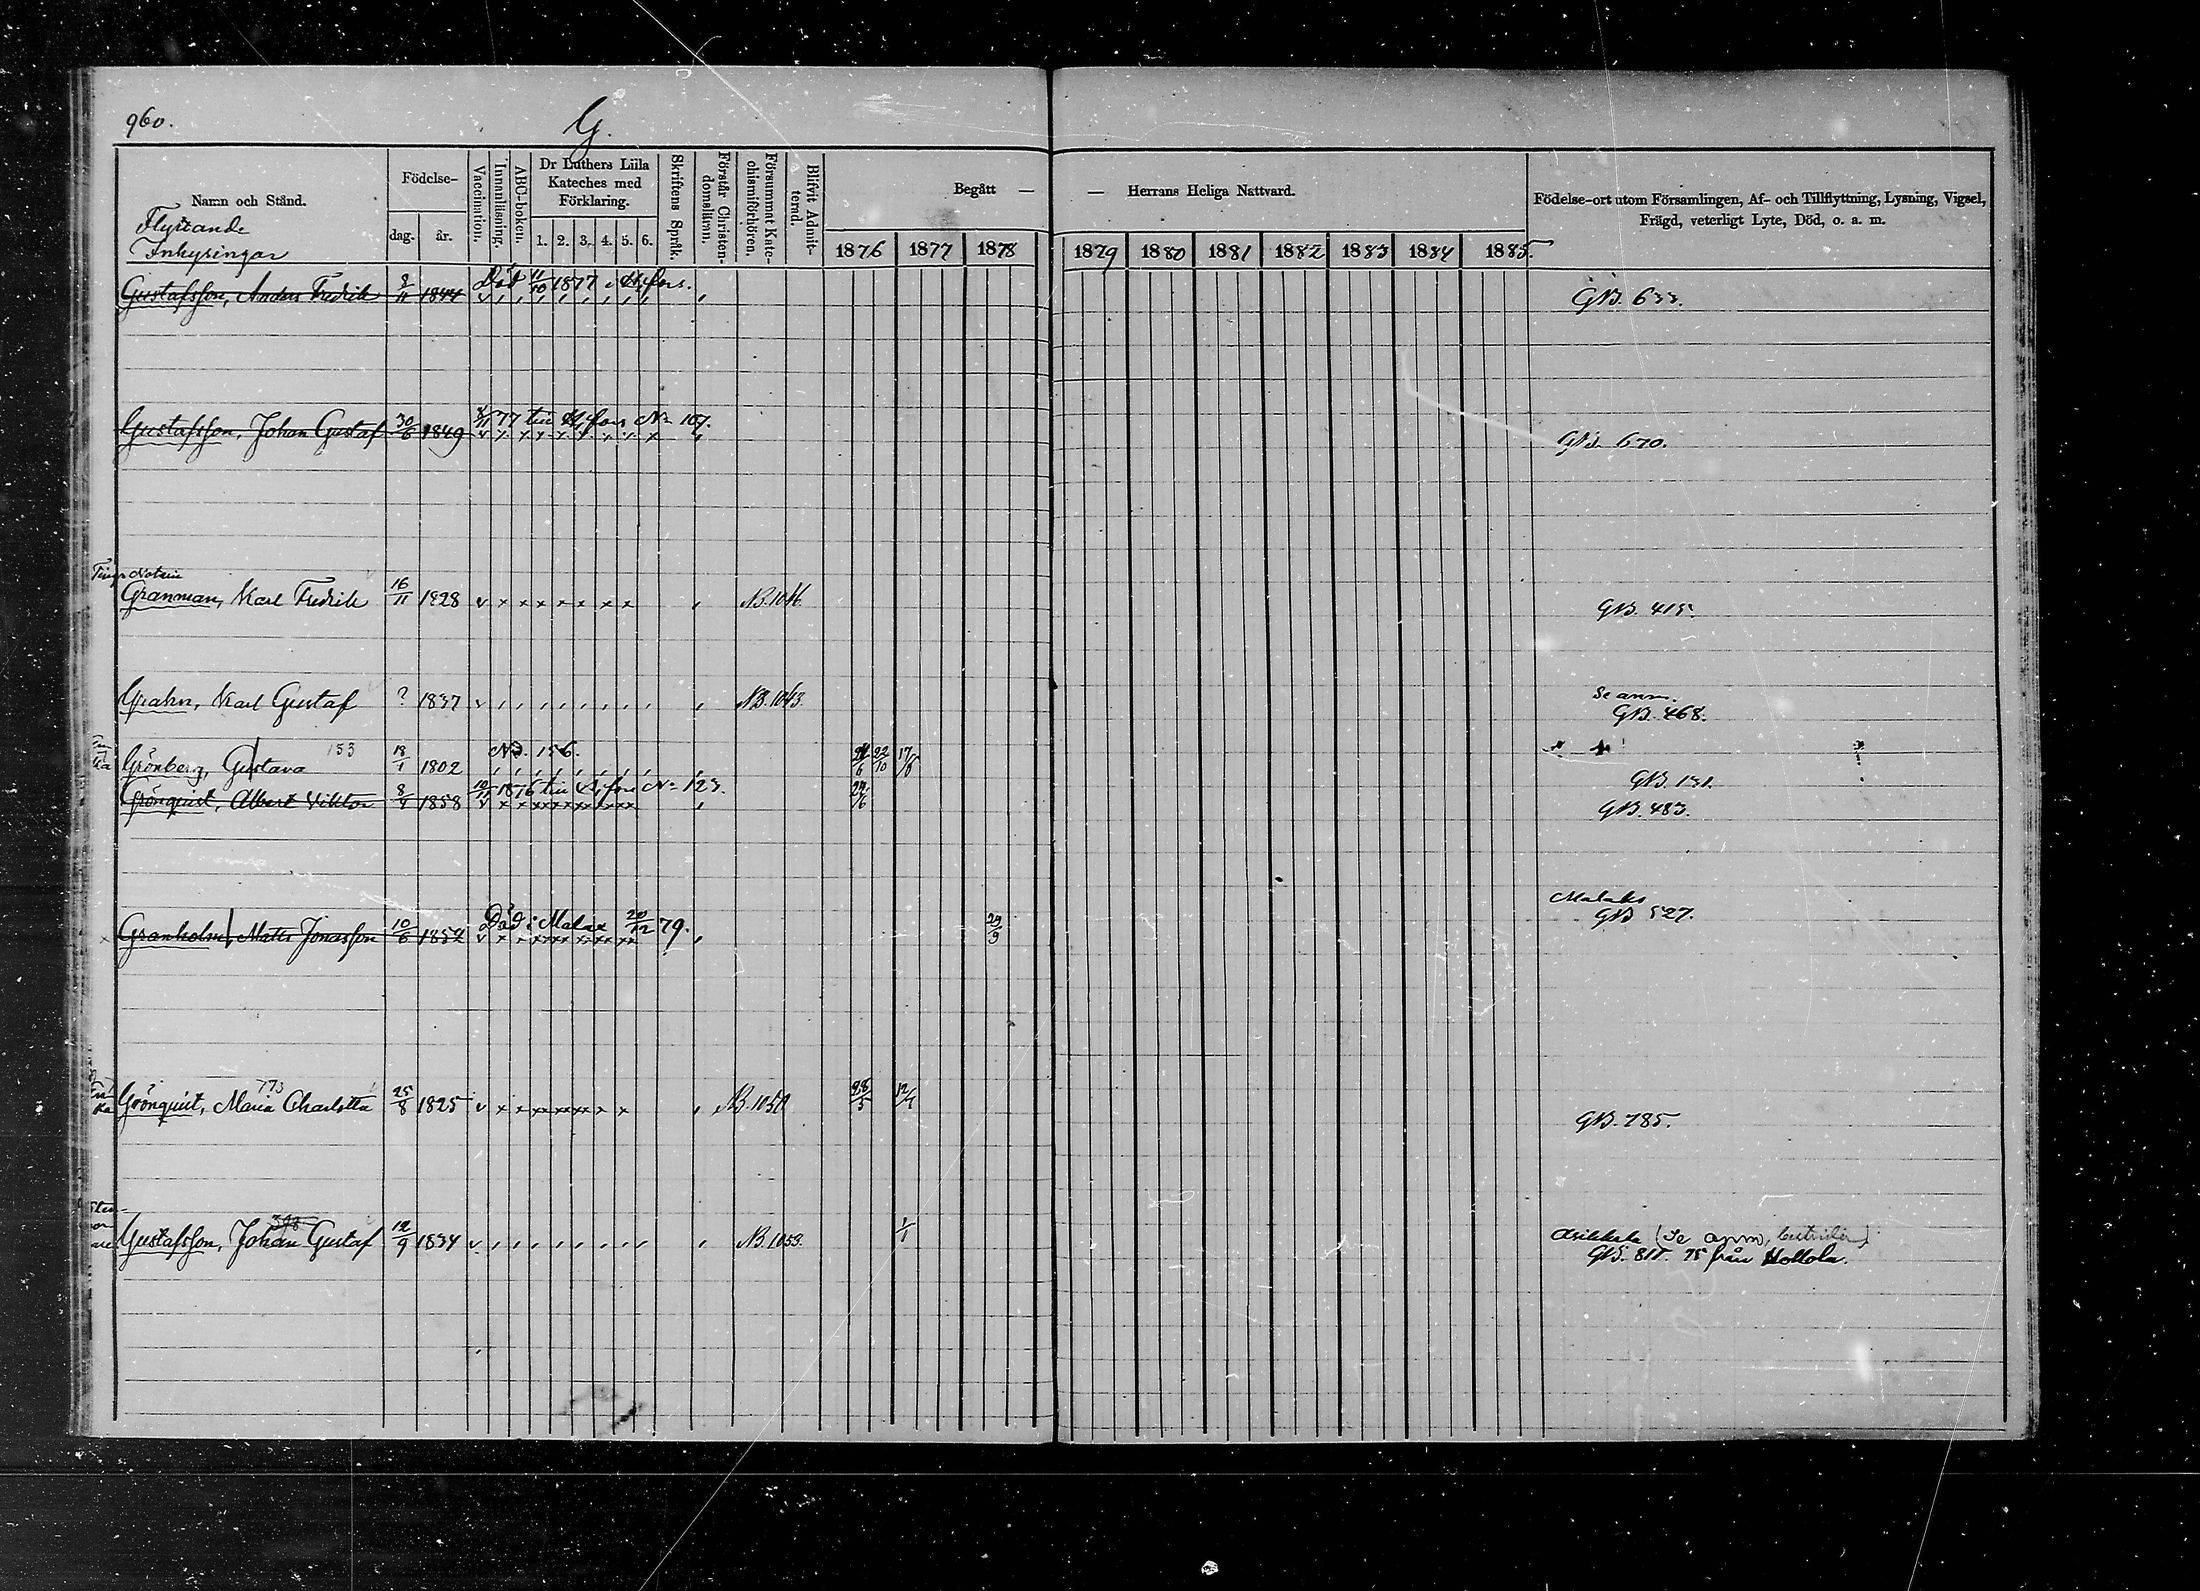 960.
G.
Namn och Stånd.
Flyttande
Inhysingar
Födelse-
dag. år.
Vaccination.
Innanläsning.
ABC-boken.
Dr Luthers Lilla
Kateches med
Förklaring.
1. 2. 3. 4. 5. 6.
Skriftens Språk.
Förstår Christen-
domslitun.
Försummat Kate-
chismiförhören.
Blifvit Admit-
terad.
Begått — — Herrans Heliga Nattvard.
1876 1877 1878 1879 1880 1881 1882 1883 1884 1885.
Födelse-ort utom Församlingen, Af- och Tillflyttning, Lysning, Vigsel,
Frägd, veterligt Lyte, Död, o. a. m.
Död 11/10 1877 i H:fors.
Gustafsson, Anders Fredrik 2/11 1844 GB. 633.
8/11 77 till H:fors No 107.
Gustafsson, Johan Gustaf 30/6 1849 GB. 670.
Granman, Karl Fredrik 16/11 1828 NB. 1046. GB. 415.
Grahn, Karl Gustaf ? 1837 NB. 1043. Se anm.
GB. 468.
153 No. 156.
Grönberg, Gustava 18/1 1802 22/10 GB. 131.
10/11 1876 till H:fors No 123.
Grönquist, Albert Viktor 8/4 1858 GB. 483.
Död i Malax 20/12 79. Malaks
Granholm, Matts Jonasson 10/6 1852 29/9 GB 527.
773
Grönquist, Maria Charlotta 25/8 1825 NB. 1050 28/5 GB. 785.
398
Gustafsson, Johan Gustaf 12/9 1834 NB. 1053. 1/1 Asikkala (Se anm,
GB. 817. 75 från Hollola.